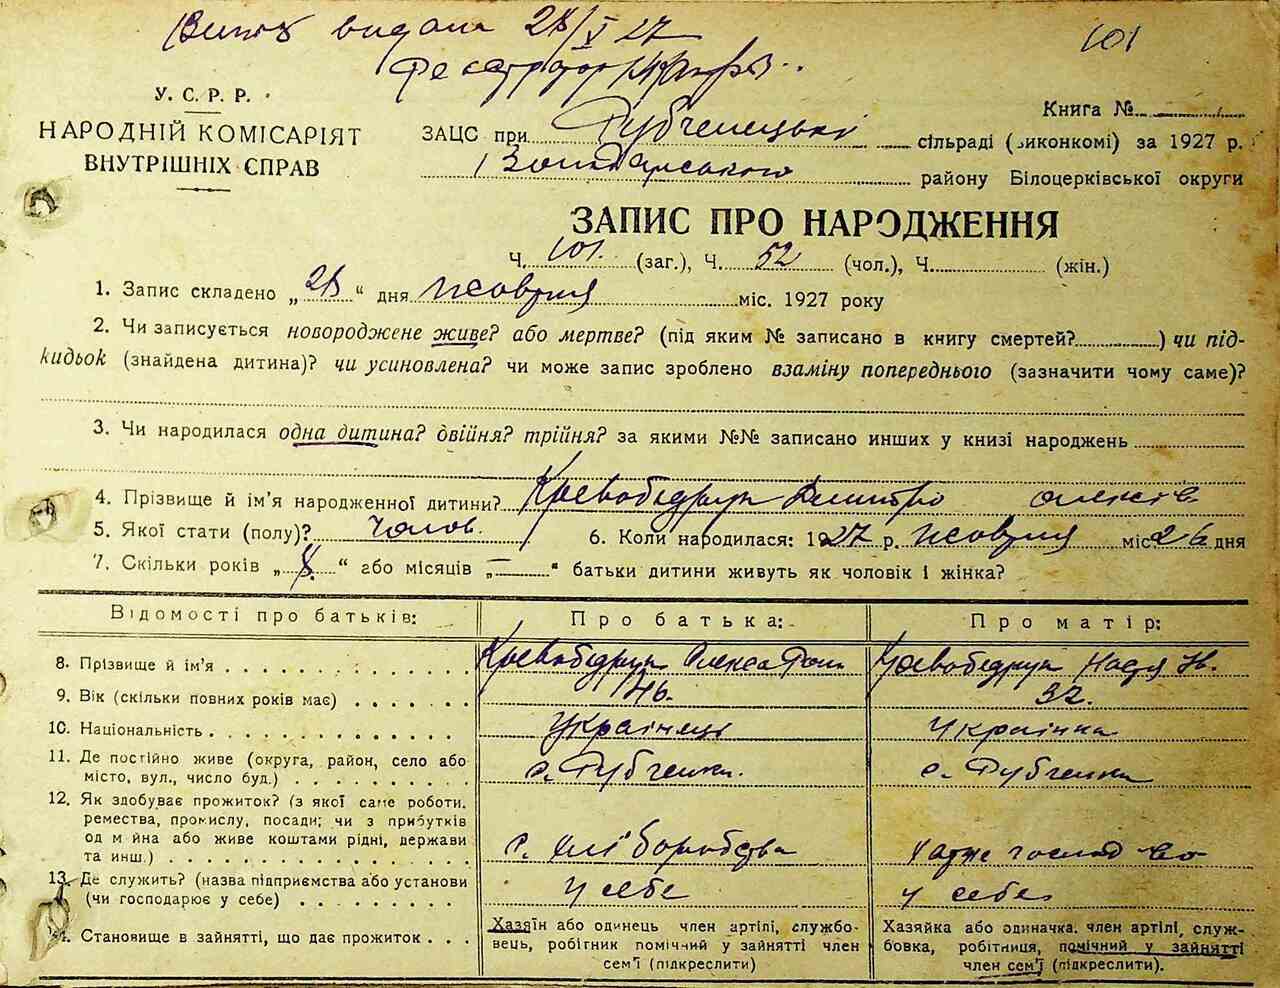 видана 28/X 27
101
У. С. Р. Р.
НАРОДНІЙ КОМІСАРІЯТ
ВНУТРІШНІХ СПРАВ
Книга №
ЗАЦС при Рубченецькі сільраді (виконкомі) за 1927 р.
району Білоцерківської округи
ЗАПИС ПРО НАРОДЖЕННЯ
Ч. 101. (заг.), Ч. 52 (чол.), Ч. (жін.)
1. Запис складено „28“ дня жовтня міс. 1927 року
2. Чи записується новороджене живе? або мертве? (під яким № записано в книгу смертей? ) чи під-
кидьок (знайдена дитина)? чи усиновлена? чи може запис зроблено взаміну попереднього (зазначити чому саме)?
3. Чи народилася одна дитина? двійня? трійня? за якими №№ записано инших у книзі народжень
4. Прізвище й ім’я народженної дитини? Кривобедрик Дмитро Олексів
5. Якої стати (полу)? Чолов. 6. Коли народилася: 1927 р. жовтня міс. 26 дня
7. Скільки років „8.“ або місяців „—“ батьки дитини живуть як чоловік і жінка?
Відомості про батьків: Про батька: Про матір:
8. Прізвище й ім’я Кривобедрик Олекса Кривобедрик Настя
9. Вік (скільки повних років має) 46. 32.
10. Національність Українець Українка
11. Де постійно живе (округа, район, село або
місто, вул., число буд.) с. Рубченки. с. Рубченки
12. Як здобуває прожиток? (з якої саме роботи,
ремества, промислу, посади; чи з прибутків
од майна або живе коштами рідні, держави
та инш.) хліборобства хатне господ-во
13. Де служить? (назва підприємства або установи
(чи господарює у себе) у себе у себе
14. Становище в зайнятті, що дає прожиток
Хазяїн або одинець член артілі, службо-
вець, робітник помічний у зайнятті член
сем’ї (підкреслити)
Хазяйка або одиначка член артілі, служ-
бовка, робітниця, помічний у зайнятті
член сем’ї (підкреслити).